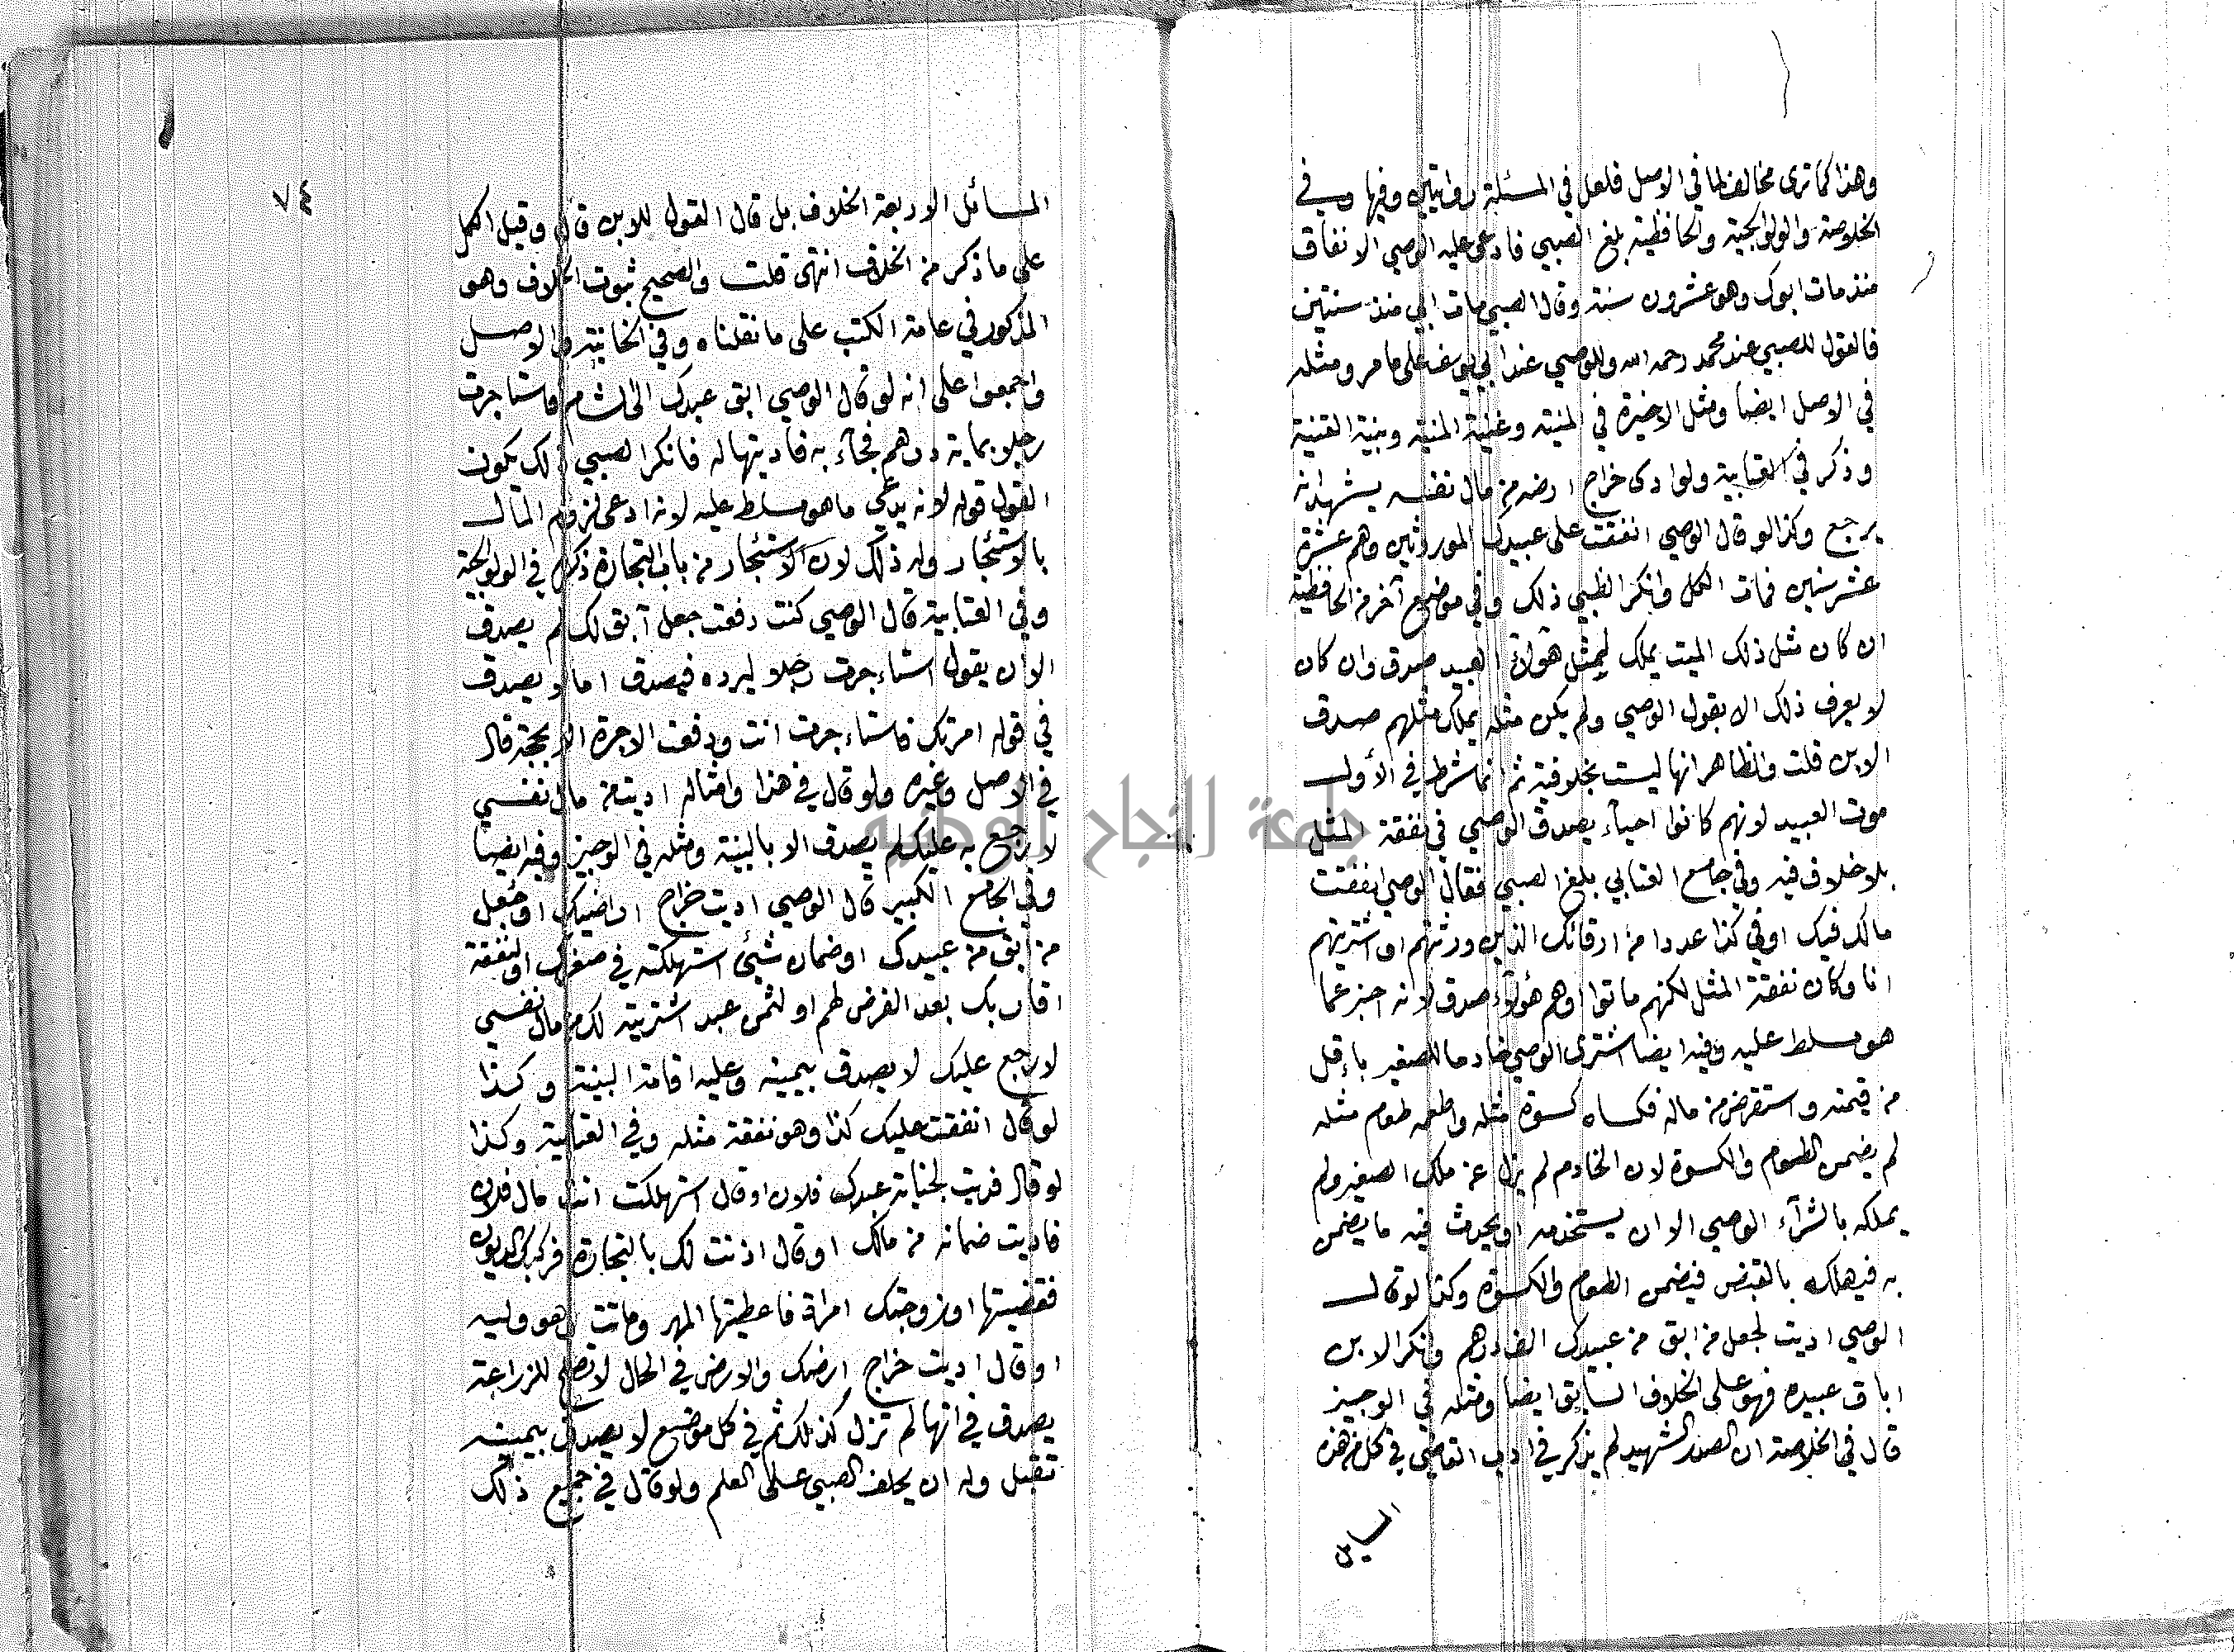 وهذا كما ترى مخالف لما في الاصل فلعل في المسئلة روايتين وفيها وفي
الخلاصة والولوالجية والحافظية بلغ الصبي فادعى عليه الوصي الانفاق
منذ مات ابوك وهو عشرون سنة وقال الصبي مات ابي منذ سنتين
فالقول للصبي عند محمد رحمه الله وللوصي عند ابي يوسف على ما مر ومثله
في الاصل ايضا ومثل الاخيرة في المنية وغنية المنية وبنية القنية
وذكر في العتابية ولو ادى خراج ارضه من مال نفسه يشهد انه
يرجع وكذا لو قال الوصي انفقت على عبيدك الموروثين وهم عشرة
عشر سنين فمات الكل وانكر الصبي ذلك وفي موضع آخر من الحافظية
ان كان مثل ذلك الميت يملك لمثل هؤلاء العبيد صدق وان كان
لا يعرف ذلك الا بقول الوصي ولم يكن مثله يملك مثلهم صدق
الابن قلت والظاهر انها ليست بخلافية ثم انما شرط في الأول
موت العبيد لانهم كانوا احياء يصدق الوصي في نفقة المثل
بلا خلاف فيه وفي جامع العتابي بلغ الصبي فقال الوصي انفقت
مالك فيك او في كذا عددا من ارقائك الذين ورثتهم او اشتريتهم
انا وكان نفقة المثل لكنهم ماتوا اوهم هؤلاء صدق لانه اخبر عما
هو مسلط عليه وفيه ايضا اشترى الوصي خادما للصغير باقل
من قيمته واستقرض من ماله فكساه كسوة مثله واطعمه طعام مثله
لم يضمن الطعام والكسوة لان الخادم لم يزل عن ملك الصغير ولم
يملكه بالشرآء الوصي الا ان يستخدمه او يحدث فيه ما يضمن
به فيهلك بالقبض فيضمن الطعام والكسوة وكذا لو قال
الوصي اديت لجعل من ابق من عبيدك الف درهم وانكر الابن
اباق عبيده فهو على الخلاف السابق ايضا ومثله في الوجيز
قال في الخلاصة ان الصدر الشهيد لم يذكر في ادب القاضي في كل من هذه
المسايل
٧٤
المسائل الاربعة الخلاف بل قال القول للابن قال وقيل الكل
على ما ذكر من الخلاف انتهى قلت والصحيح ثبوت الخلاف وهو
المذكور في عامة الكتب على ما نقلناه وفي الخانية والاصل
واجمعوا على انه لو قال الوصي ابق عبدك الى الشام فاستاجرت
رجلا بماية درهم فجآء به فاديتها له فانكر الصبي ذلك يكون
القول قوله لانه يدعي ما هو مسلط عليه لانه ادعى لزوم المال
بالاستئجار وله ذلك لان الاستئجار من باب التجارة ذكره في الولوالجية
وفي العتابية قال الوصي كنت دفعت جعل آبق لك لم يصدق
الا ان يقول استاءجرت رجلا ليرده فيصدق اما لا يصدق
في قوله امرتك فاستاءجرت انت ودفعت الاجرة الا بحجة قال
في الاصل وغيره ولو قال في هذا وامثاله اديت من مال نفسي
لارجع به عليك لم يصدق الا بالبينة ومثله في الوجيز وفيه ايضا
وفي الجامع الكبير قال الوصي اديت خراج اراضيك او جعل
من ابق من عبيدك او ضمان شيئ استهلكته في صغرك او لنفقة
اقاربك بعد الفرض لهم او لثمن عبد اشتريته لك من مال نفسي
لارجع عليك لا يصدق بيمينه وعليه اقامة البينة وكذا
لو قال انفقت عليك كذا وهو نفقة مثله وفي العتابية وكذا
لو قال فديت لجناية عبدك فلان او قال استهلكت انت مال فلان
فاديت ضمانه من مالك او قال اذنت لك بالتجارة فركبك الديون
فقضيتها او زوجتك امراة فاعطيتها المهر وماتت وهو وليه
او قال اديت خراج ارضك والارض في الحال لا تصلح للزراعة
يصدق في انها لم تزل كذلك ثم في كل موضع لا يصدق بيمينه
تقبل وله ان يحلف الصبي على العلم ولو قال في جميع ذلك
جامعة النجاح الوطنية